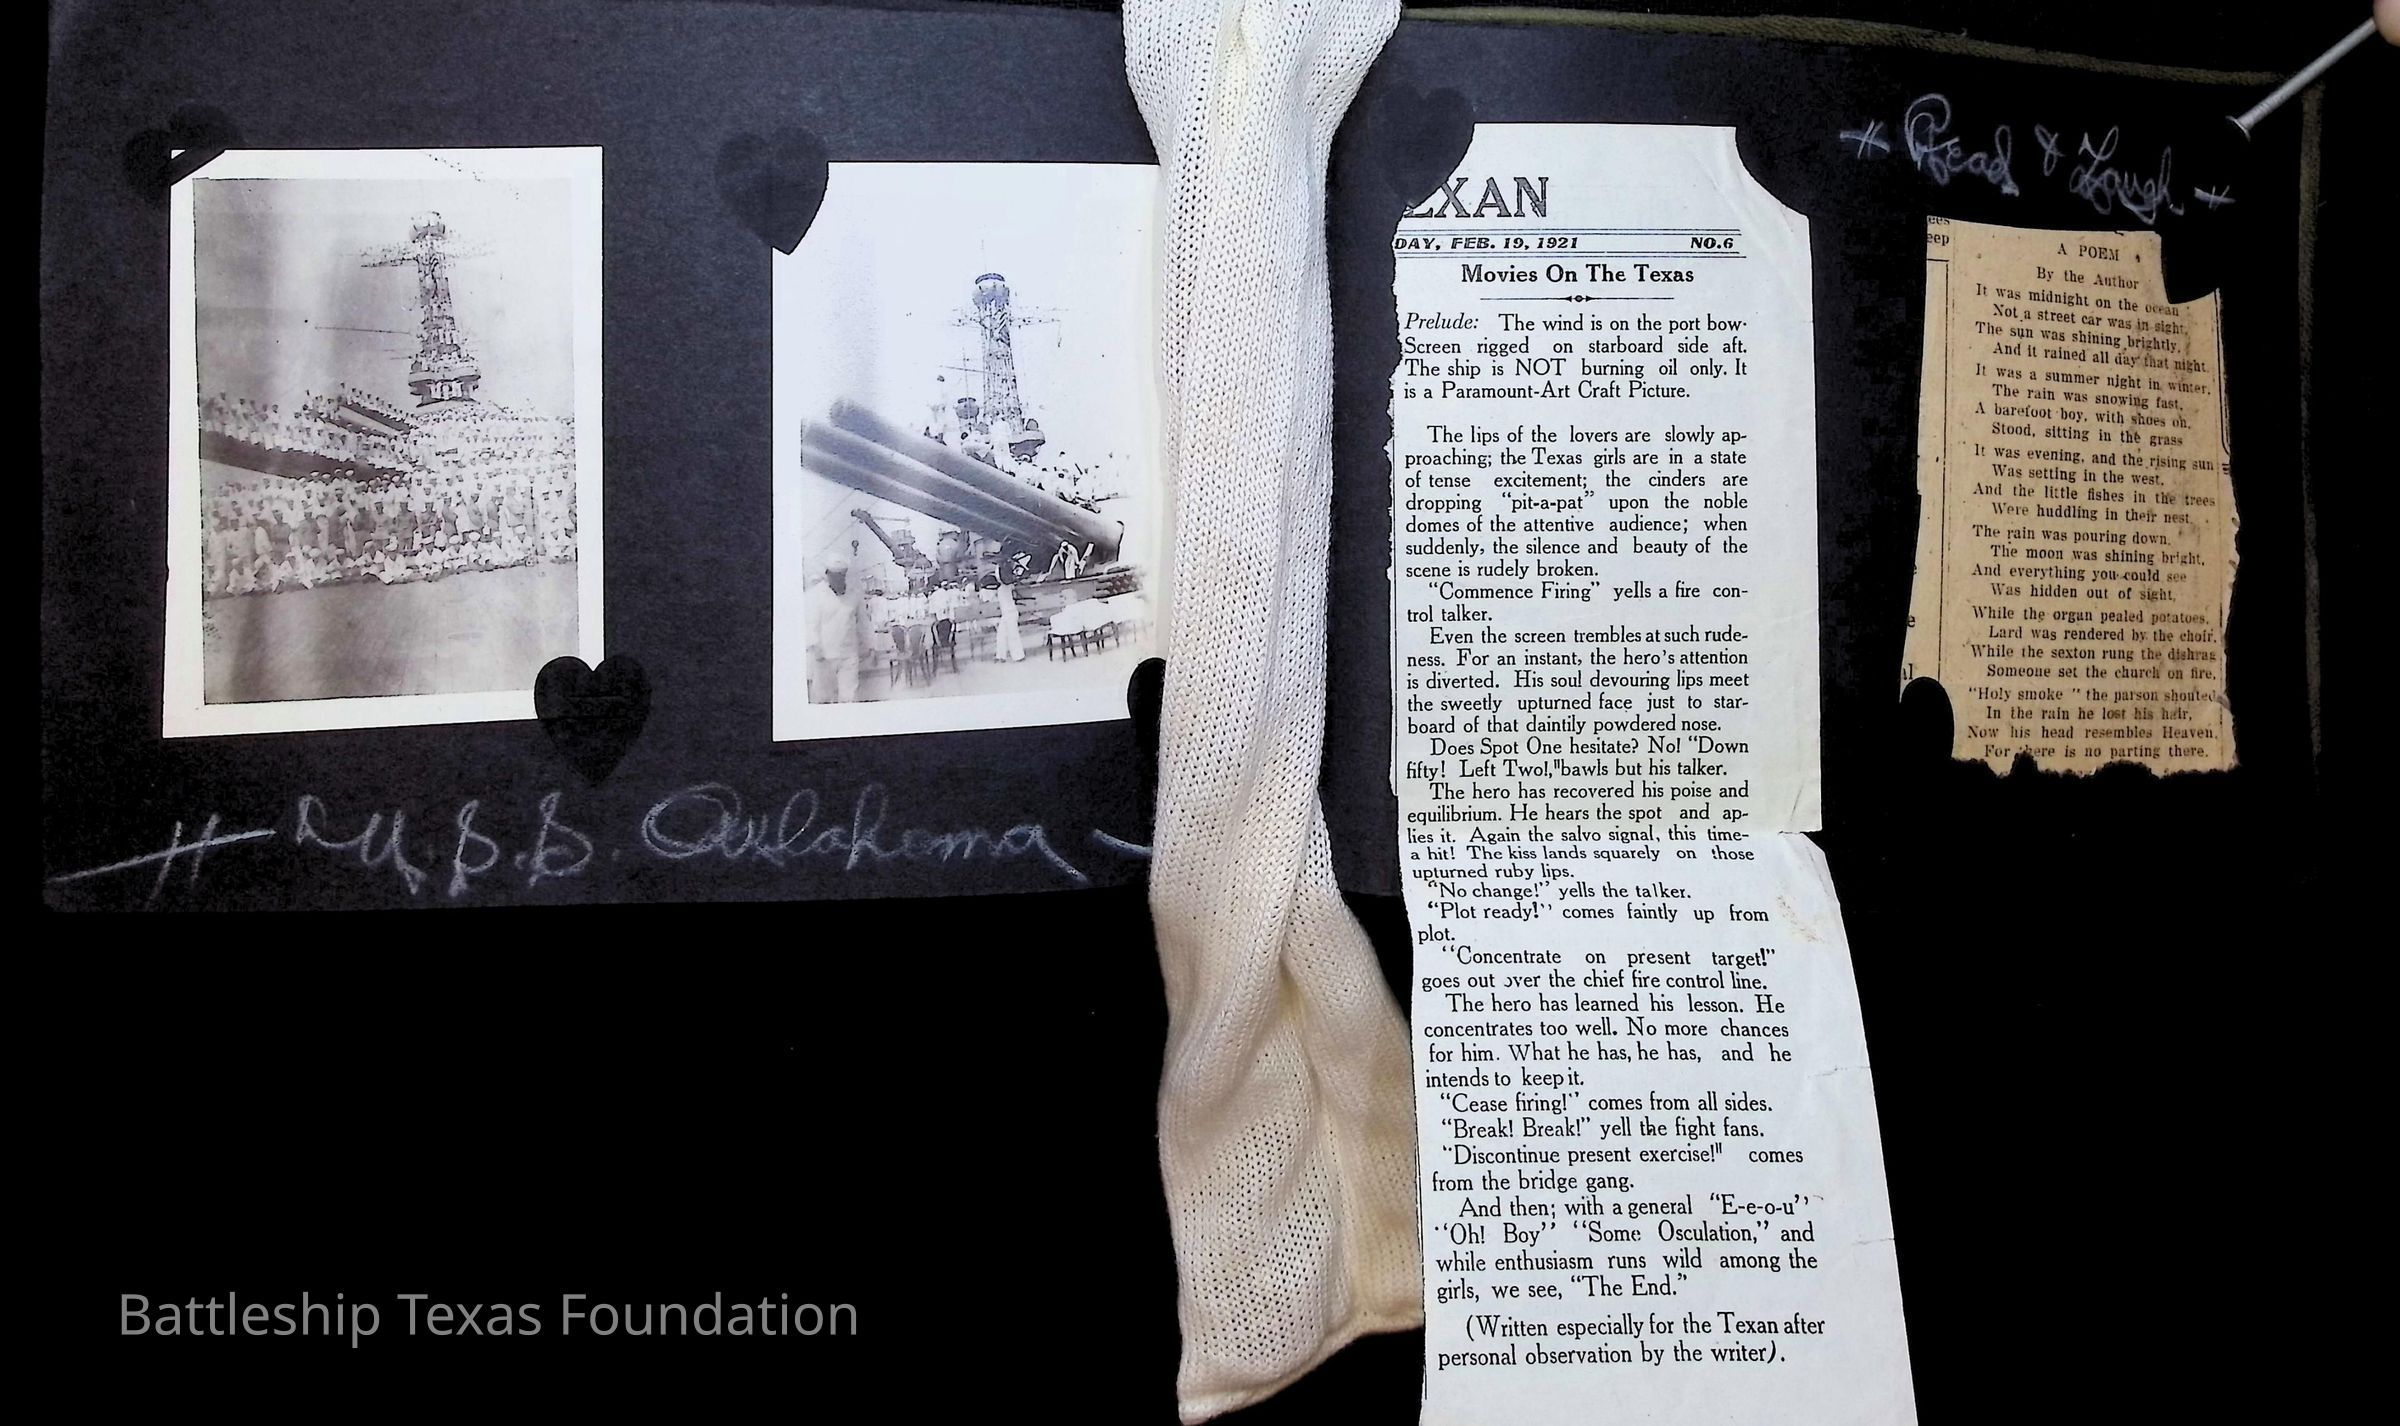 U.S.S. Oklahoma
EXAN
DAY, FEB. 19, 1921 NO.6
Movies On The Texas
Prelude: The wind is on the port bow.
Screen rigged on starboard side aft.
The ship is NOT burning oil only. It
is a Paramount-Art Craft Picture.
The lips of the lovers are slowly ap-
proaching; the Texas girls are in a state
of tense excitement; the cinders are
dropping "pit-a-pat" upon the noble
domes of the attentive audience; when
suddenly, the silence and beauty of the
scene is rudely broken.
"Commence Firing" yells a fire con-
trol talker.
Even the screen trembles at such rude-
ness. For an instant, the hero's attention
is diverted. His soul devouring lips meet
the sweetly upturned face just to star-
board of that daintily powdered nose.
Does Spot One hesitate? No! "Down
fifty! Left Two!,"bawls but his talker.
The hero has recovered his poise and
equilibrium. He hears the spot and ap-
lies it. Again the salvo signal, this time-
a hit! The kiss lands squarely on those
upturned ruby lips.
"No change!" yells the talker.
"Plot ready!" comes faintly up from
plot.
"Concentrate on present target!"
goes out over the chief fire control line.
The hero has learned his lesson. He
concentrates too well. No more chances
for him. What he has, he has, and he
intends to keep it.
"Cease firing!" comes from all sides.
"Break! Break!" yell the fight fans.
"Discontinue present exercise!" comes
from the bridge gang.
And then; with a general "E-e-o-u"
"Oh! Boy" "Some Osculation," and
while enthusiasm runs wild among the
girls, we see, "The End."
(Written especially for the Texan after
personal observation by the writer).
Read & Laugh
ees
eep
A POEM
By the Author
It was midnight on the ocean
Not a street car was in sight,
The sun was shining brightly,
And it rained all day that night.
It was a summer night in winter,
The rain was snowing fast,
A barefoot boy, with shoes on,
Stood, sitting in the grass
It was evening, and the rising sun
Was setting in the west,
And the little fishes in the trees
Were huddling in their nest.
The rain was pouring down,
The moon was shining bright,
And everything you could see
Was hidden out of sight,
While the organ pealed potatoes,
Lard was rendered by the choir,
While the sexton rung the dishrag
Someone set the church on fire,
"Holy smoke " the parson shouted
In the rain he lost his hair,
Now his head resembles Heaven,
For there is no parting there.
Battleship Texas Foundation